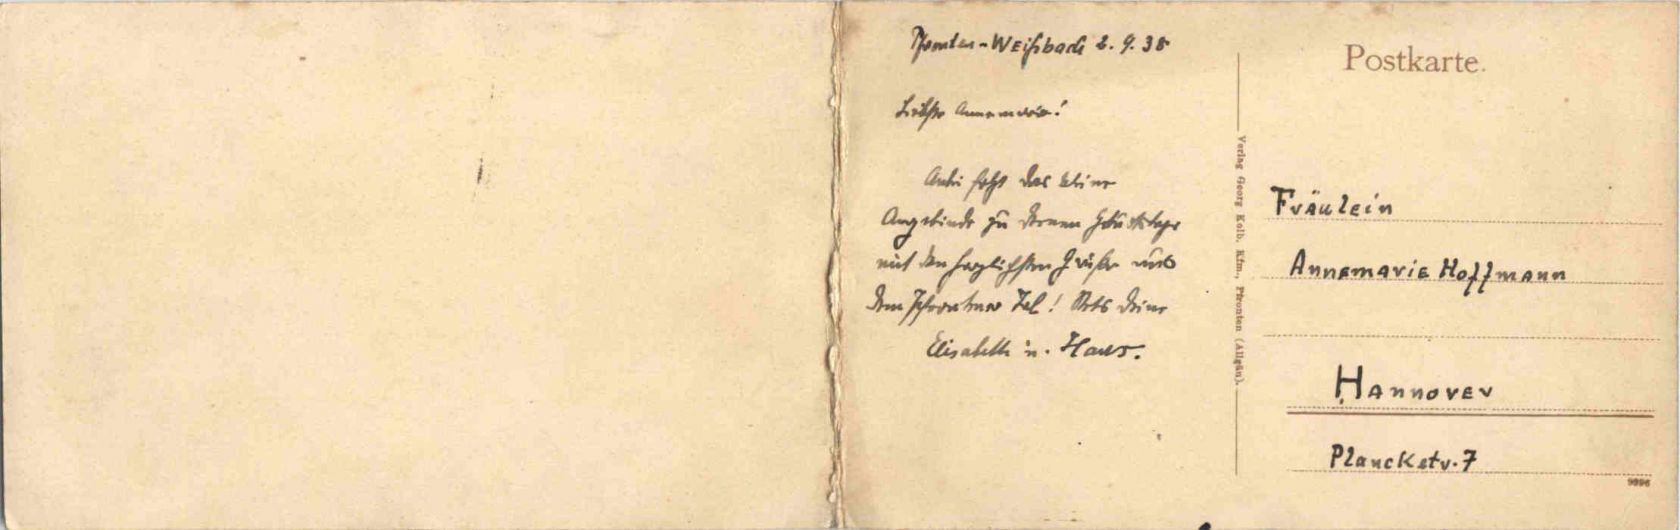 Pfronten-Weißbach 2. 9. 38
Liebste Annemarie!
Anbei folgt das kleine
Angebinde zu Deinem Geburtstage
mit den herzlichsten Grüßen aus
dem Pfrontner Tal! Stets Deine
Elisabeth u. Hans.
Verlag Georg Kolb, Kfm., Pfronten (Allgäu).
Postkarte.
Fräulein
Annemarie Hoffmann
Hannover
Planckstr. 7